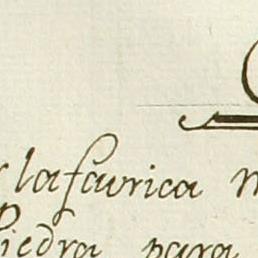 lafavrica
piedra para